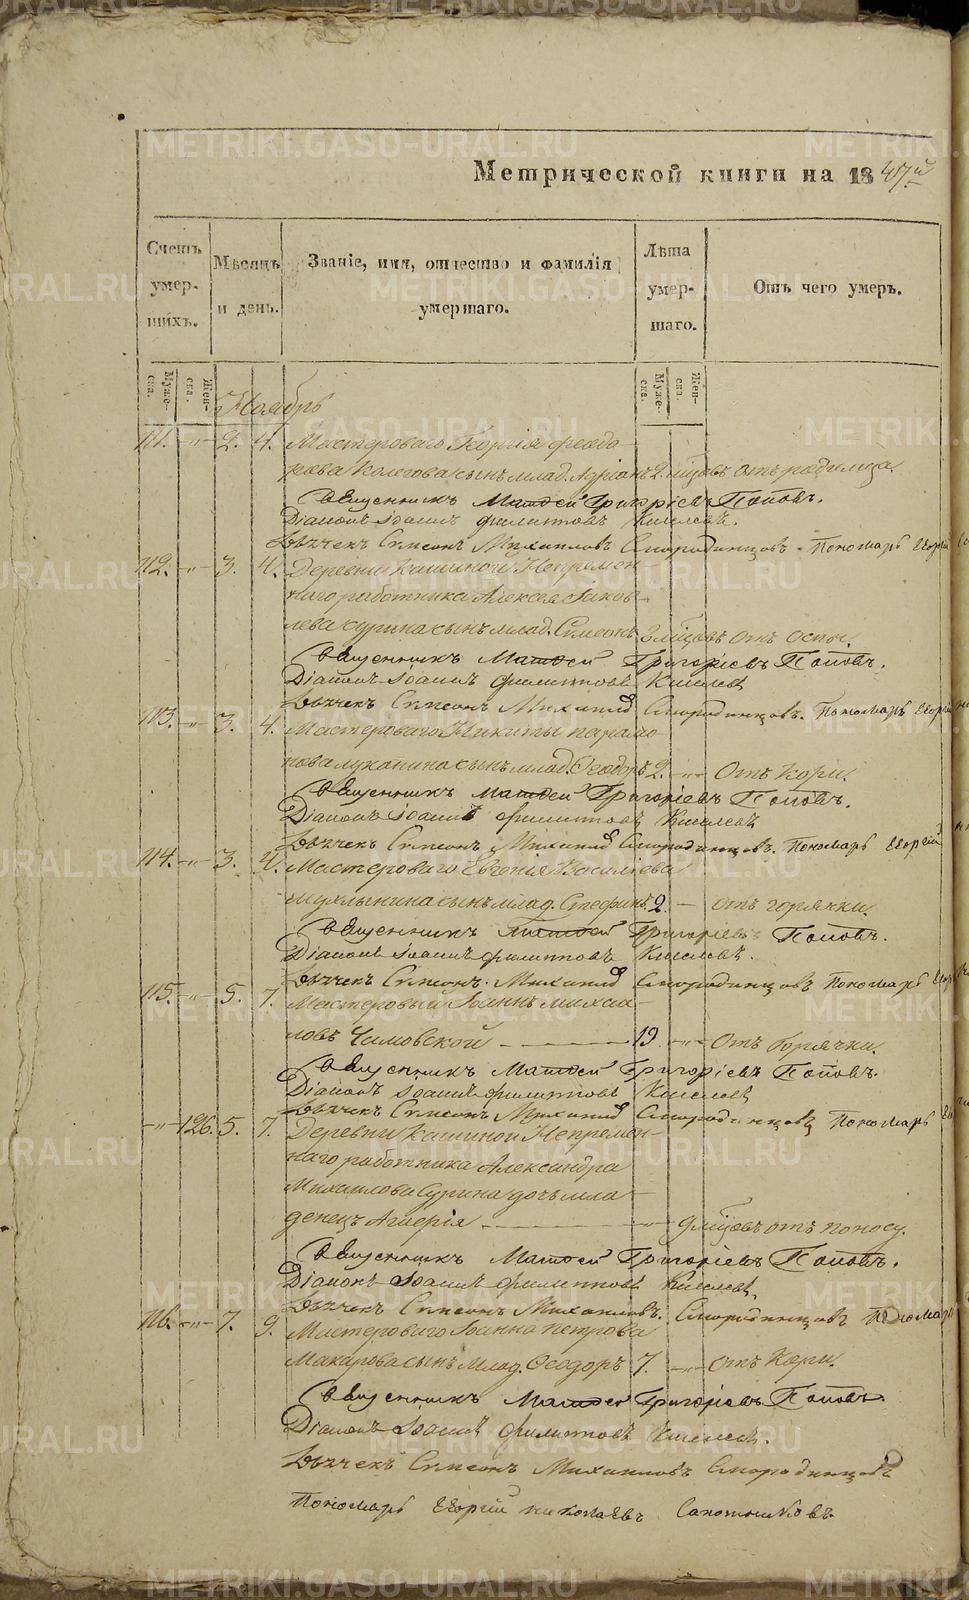 Метрической книги на 1847й
Счетъ умер-шихъ.
Мѣсяцъ и день.
Званіе, имя, отчество и фамилія умершаго.
Лѣта умер-шаго.
Отъ чего умеръ.
Муже-ска. Жен-ска. Муже-ска. Жен-ска.
Ноябрь
111. -"- 2. 4. Мастероваго Ѳеодо-
рова сынъ млад. Адріанъ 2. мѣцовъ отъ родимца.
Священникъ Матѳей Григоріевъ Поповъ.
Діаконъ Іоаннъ Филипповъ Киселевъ.
Дьячекъ Симеонъ Михаиловъ Смородинцовъ. Пономарь Егорій
112. -"- 3. 4. Деревни Кашиной Непремен-
наго работника Алексея Яков-
лева Сурина сынъ млад. Симеонъ 3 мѣцовъ отъ оспы.
Священникъ Матѳей Григоріевъ Поповъ.
Діаконъ Іоаннъ Филипповъ Киселевъ
Дьячекъ Симеонъ Михаилов Смородинцовъ. Пономарь Егорій
113. -"- 3. 4. Мастероваго Никиты Парамо-
нова Луканина сынъ млад. Ѳеодоръ 2. -"- Отъ Кори.
Священникъ Матѳей Григоріевъ Поповъ.
Діаконъ Іоаннъ Филипповъ Киселевъ
Дьячекъ Симеонъ Михаилов Смородинцовъ. Пономарь Егорій
114. -"- 3. 4. Мастероваго Евгенія Васильева
сынъ млад. Стефанъ 2. - отъ горячки.
Священникъ Матѳей Григоріевъ Поповъ.
Діаконъ Іоаннъ Филипповъ Киселевъ.
Дьячекъ Симеонъ Михаилов Смородинцовъ Пономарь
115. -"- 5. 7. Мастеровый Іоаннъ Михаи-
ловъ Чамовской 19. -"- Отъ Горячки.
Священникъ Матѳей Григоріевъ Поповъ.
Діаконъ Іоаннъ Филипповъ Киселевъ
Дьячекъ Симеонъ Михаилов Смородинцовъ Пономарь
-"- 126. 5. 7. Деревни Кашиной Непремен-
наго работника Александра
Михаилова Сурина дочь мла-
денецъ -"- 9 мѣцовъ отъ поносу.
Священникъ Матѳей Григоріевъ Поповъ.
Діаконъ Іоаннъ Филипповъ Киселевъ.
Дьячекъ Симеонъ Михаиловъ. Смородинцовъ Пономарь
116. -"- 7. 9. Мастероваго Іоанна Петрова
Макарова сынъ Млад. Ѳеодоръ 7. -"- Отъ Кори.
Священникъ Матѳей Григоріевъ Поповъ.
Діаконъ Іоаннъ Филипповъ Киселевъ.
Дьячекъ Симеонъ Михаиловъ Смородинцовъ
Пономарь Егорій Николаевъ Сапожниковъ.
METRIKI.GASO-URAL.RU